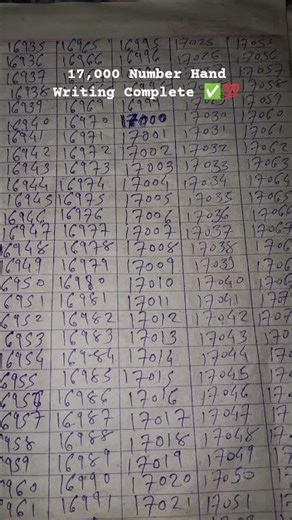 16935 16965 16995 17025 17055
16936 16966 16996 17026 17056
16937 17057
17,000 Number Hand
Writing Complete ✅💯
16939 17059
16940 16970 17000 17030 17060
16941 16971 17001 17031 17061
16942 16972 17002 17032 17062
16943 16973 17003 17033 17063
16944 16974 17004 17034 17064
16945 16975 17005 17035 17065
16946 16976 17006 17036 1706
16947 16977 17007 17037 1706
16948 16978 17008 17038 1706
6949 16979 17009 17039 1706
6950 16980 17010 17040 1707
6951 16981 17011 17041 1707
6952 16982 17012 17042 1707
6953 16983 17013 17043 1707
6954 16984 17014 17044 1707
6955 16985 17015 17045 1707
6956 16986 17016 17046 170
6957 16987 17017 17047 170
958 16988 17018 17048 170
959 16989 17019 17049 170
960 16990 17020 17050 170
961 16991 17021 17051 17